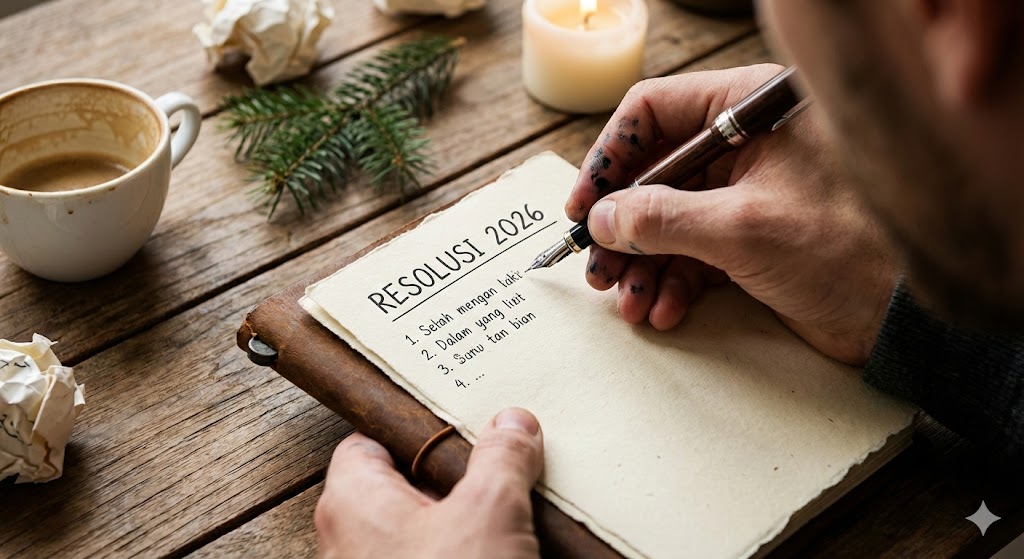 RESOLUSI 2026
1. Setah mengan lakit
2. Dalam yang liut
3. Sumu tan bian
4. ...